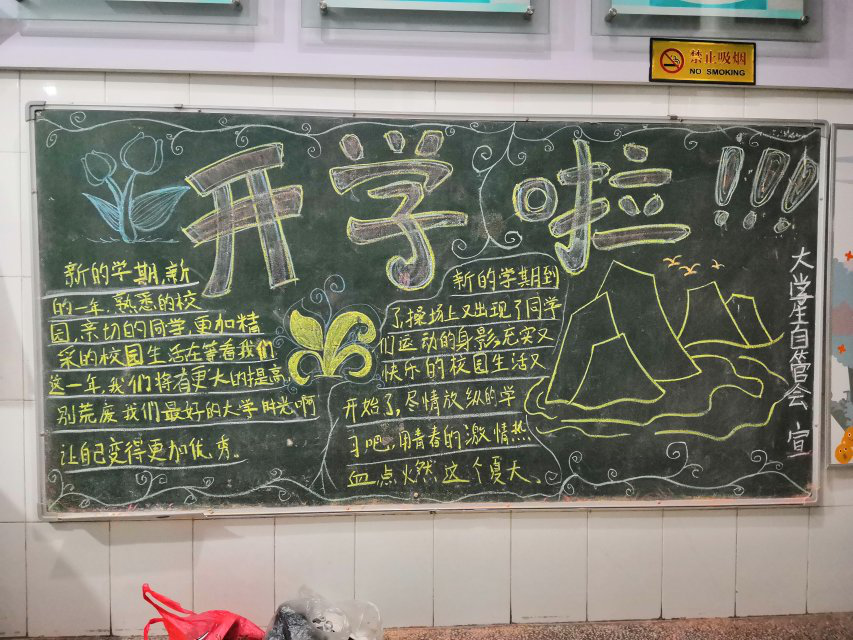 禁止吸烟
NO SMOKING
开学啦!!!
新的学期,新
的一年,熟悉的校
园,亲切的同学,更加精
采的校园生活在等着我们
这一年,我们将有更大的提高,
别荒废我们最好的大学时光啊
让自己变得更加优秀。
新的学期到
了,操场上又出现了同学
们运动的身影,充实又
快乐的校园生活又
开始了,尽情放纵的学
习吧,用青春的激情热
血点火燃这个夏天。
大学生自管会 宣